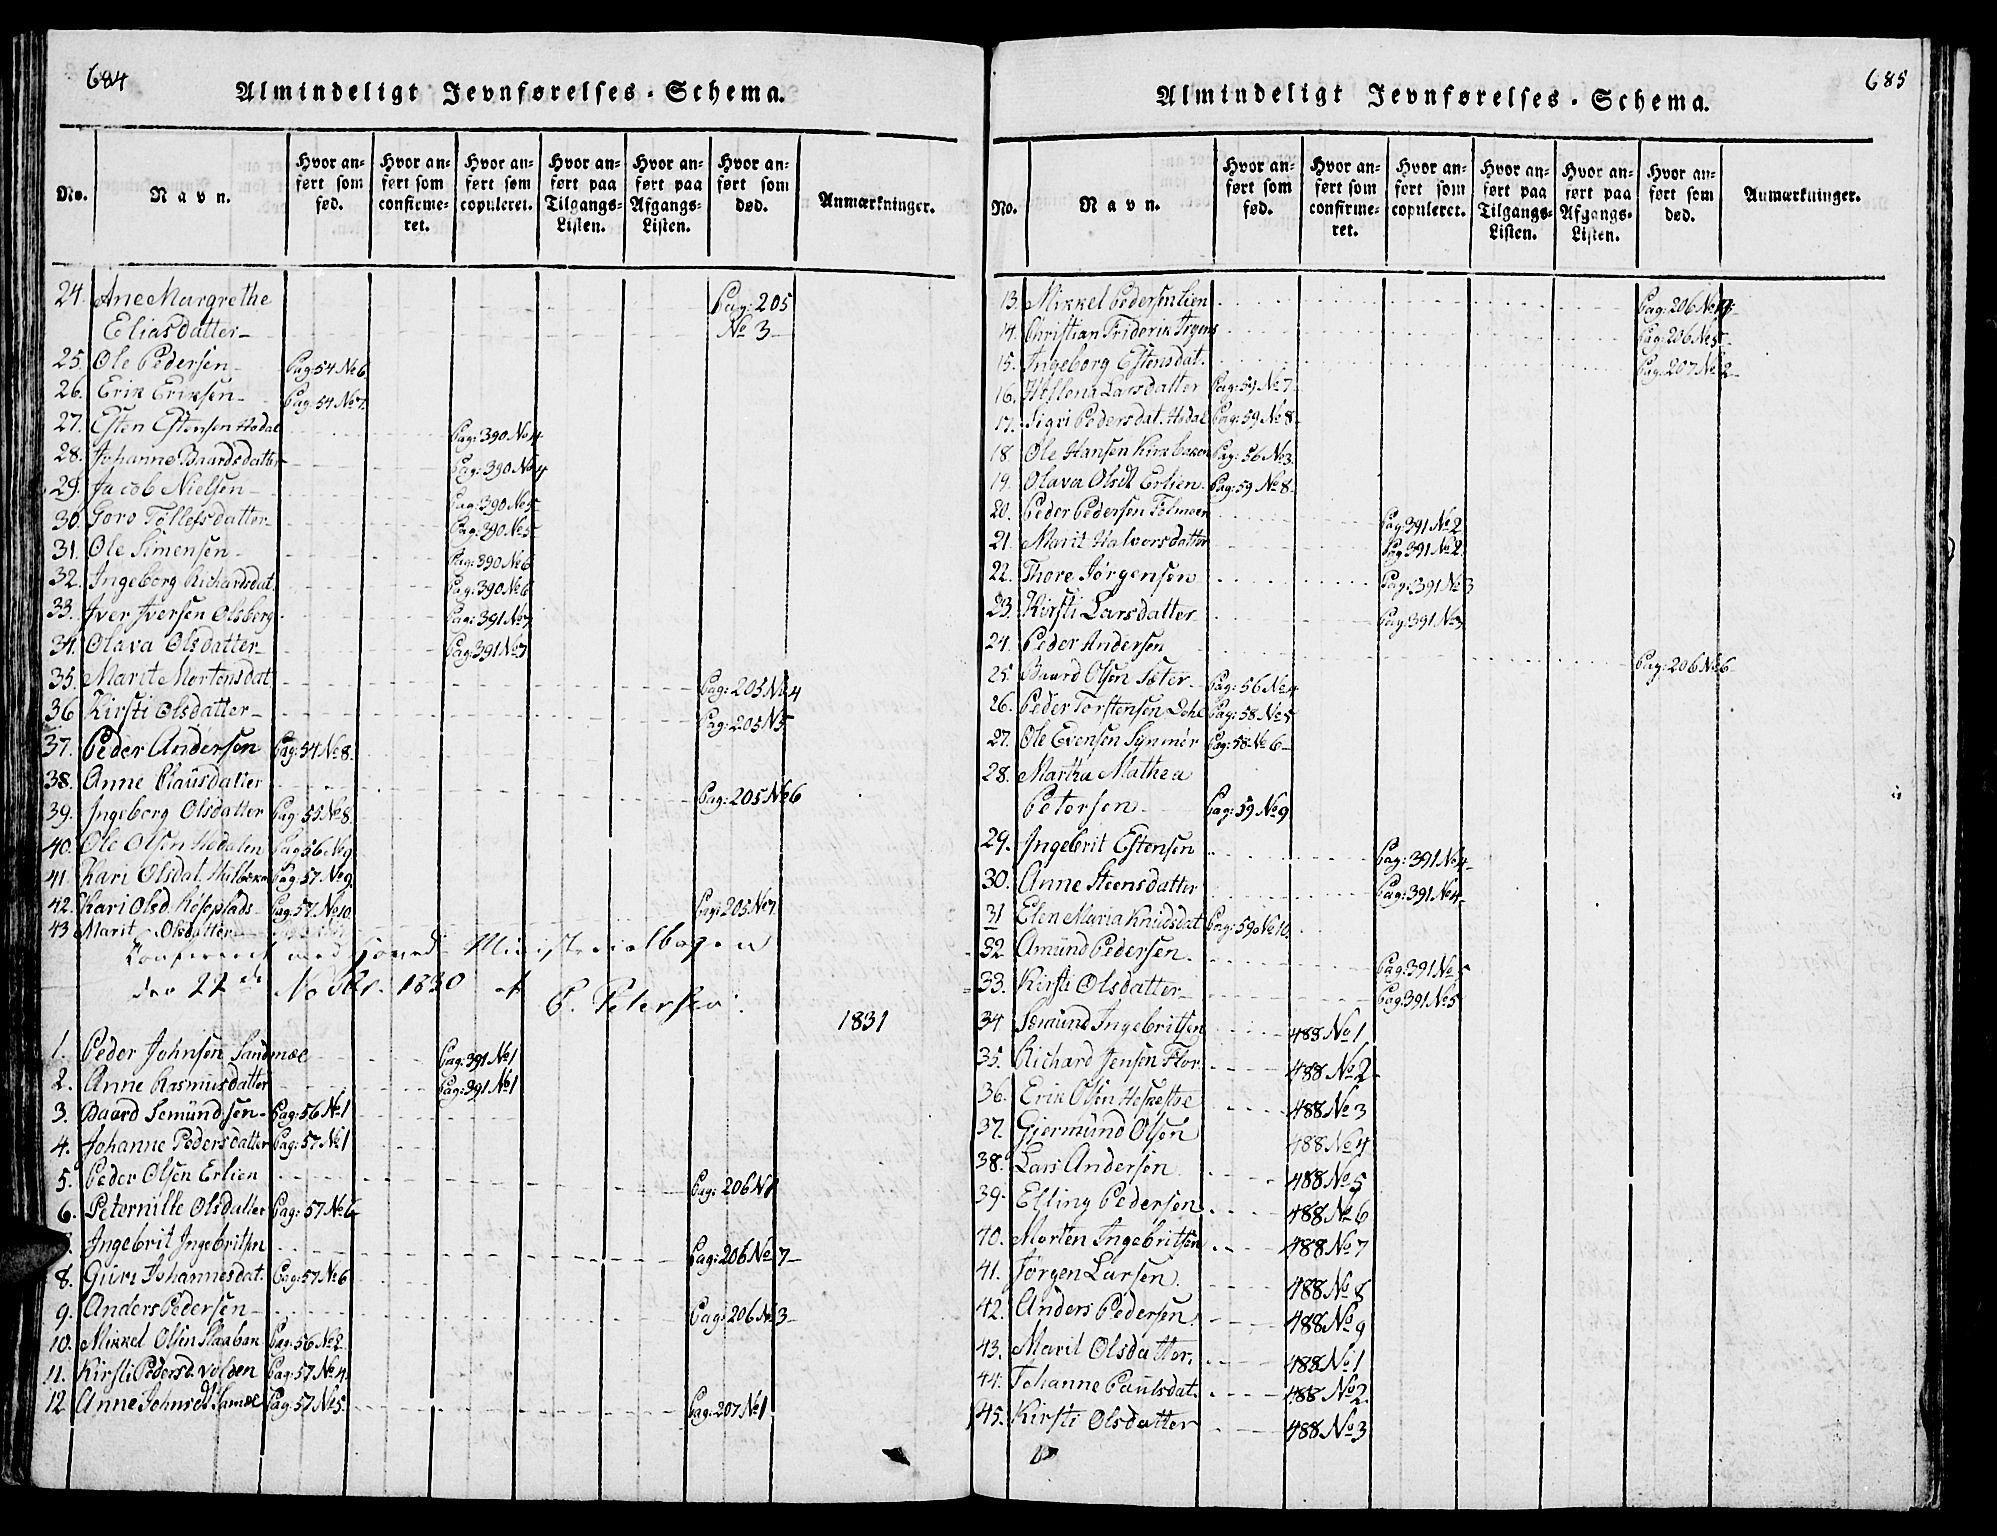 684
Almindeligt Jevnførelses-Schema.
No.
Navn.
Hvor an-
ført som
fød.
Hvor an-
ført som
confirme-
ret.
Hvor an-
ført som
copuleret.
Hvor an-
ført paa
Tilgangs-
Listen.
Hvor an-
ført paa
Afgangs-
Listen.
Hvor an-
ført som
død.
Anmærkninger.
24. Ane Margrethe Pag: 205
Eliasdatter No 3
25. Ole Pedersen Pag: 54 No 6
26. Erik Eriksen Pag: 54 No 7
27. Esten Estensen Hodal Pag: 390 No 4
28. Johanne Baardsdatter Pag: 390 No 4
29. Jacob Nielsen Pag: 390 No 5
30. Goro Tollefsdatter Pag: 390 No 5
31. Ole Simensen Pag: 390 No 6
32. Ingeborg Richardsdat. Pag: 390 No 6
33. Iver Iversen Olsberg Pag: 391 No 7
34. Olava Olsdatter Pag: 391 No 7
35. Marit Mortensdat Pag: 205 No 4
36 Kirsti Olsdatter Pag: 205 No 5
37. Peder Andersen Pag: 54 No 8
38. Anne Clausdatter Pag: 205 No 6
39. Ingeborg Olsdatter Pag: 55 No 8
40. Ole Olsen Hodalen Pag 56 No 9
41. Kari Olsdat. Pag: 57 No 9
42. Kari Olsd. Pag: 57 No 10 Pag: 205 No 7
43 Marit Olsdatter
Confereret med Hoved Ministerialbogen
den 22de 1830 af P. Petersen
1831
1. Peder Johnsen Sandmoe Pag: 391 No 1
2. Anne Rasmusdatter Pag: 391 No 1
3. Baard Semundsen Pag: 56 No 1
4. Johanne Pedersdatter Pag: 57 No 1
5. Peder Olsen Erlien Pag: 206 No 1
6. Peternille Olsdatter Pag: 57 No 6
Ingebrit Ingebritsen Pag: 206 No 7
8. Guri Johannesdat. Pag: 57 No 6
9. Anders Pedersen Pag: 206 No 3
10. Mikkel Olsen Pag: 56 No 2
11. Kirsti Pedersd. Volden Pag: 57 No 4
12. Anne Johnsdt Pag: 57 No 5 Pag: 207 No 1
685
Almindeligt Jevnførelses-Schema.
No.
Navn.
Hvor an-
ført som
fød.
Hvor an-
ført som
confirme-
ret.
Hvor an-
ført som
copuleret.
Hvor an-
ført paa
Tilgangs-
Listen.
Hvor an-
ført paa
Afgangs-
Listen.
Hvor an-
ført som
død.
Anmærkninger.
13. Mikkel Pedersen Lien Pag: 206 No 4
14. Christian Friderik Pag: 206 No 5
15. Ingeborg Estensdat. Pag: 207 No 2
16. Hellena Larsdatter Pag: 59 No 7
17. Sigri Pedersdat. Hodal Pag: 59 No 8
18 Ole Hansen Pag: 56 No 3
19. Olava Olsdt Erlien Pag: 59 No 8
20. Peder Pedersen Pag: 391 No 2
21. Marit Halvorsdatter Pag 391 No 2
22. Thore Jørgensen Pag: 391 No 3
23. Kirsti Larsdatter Pag: 391 No 3
24. Peder Andersen Pag: 206 No 6
25. Baard Olsen Sæter Pag: 56 No 4
26. Peder Torstensen Pag: 58 No 5
27. Ole Evensen Pag: 58 No 6
28. Martha Mathea
Petersen Pag: 59 No 9
29. Ingebrit Estensen Pag: 391 No 4
30. Anne Steensdatter Pag: 391 No 4
31 Elen Maria Knudsdat Pag: 59 No 10
32 Amund Pedersen Pag: 391 No 5
33. Kirsti Olsdatter Pag: 391 No 5
34 Semund Ingebritsen 488 No 1
35. Richard Jensen Flor 488 No 2
36. Erik Olsen 488 No 3
37. Gjermund Olsen 488 No 4
38. Lars Andersen 488 No 5
39. Elling Pedersen 488 No 6
40. Morten Ingebritsen 488 No 7
41. Jørgen Larsen 488 No 8
42. Anders Pedersen 488 No 9
43. Marit Olsdatter 488 No 1
44. Johanne Paulsdat. 488 No 2
45. Kirsti Olsdatter 488 No 3